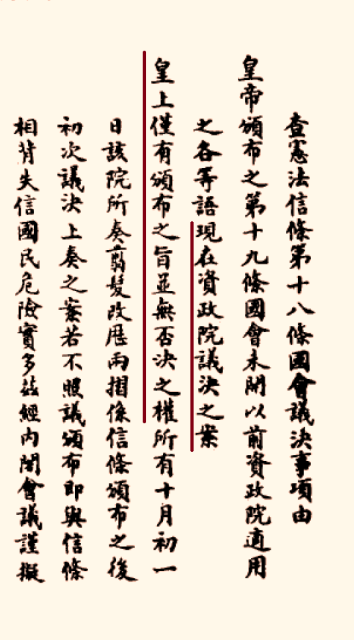 查憲法信條第十八條國會議決事項由
皇帝頒布之第十九條國會未開以前資政院適用
之各等語現在資政院議決之案
皇上僅有頒布之旨並無否決之權所有十月初一
日該院所奏翦髮改厯兩摺係信條頒布之後
初次議決上奏之案若不照議頒布即與信條
相背失信國民危險實多茲經內閣會議謹擬